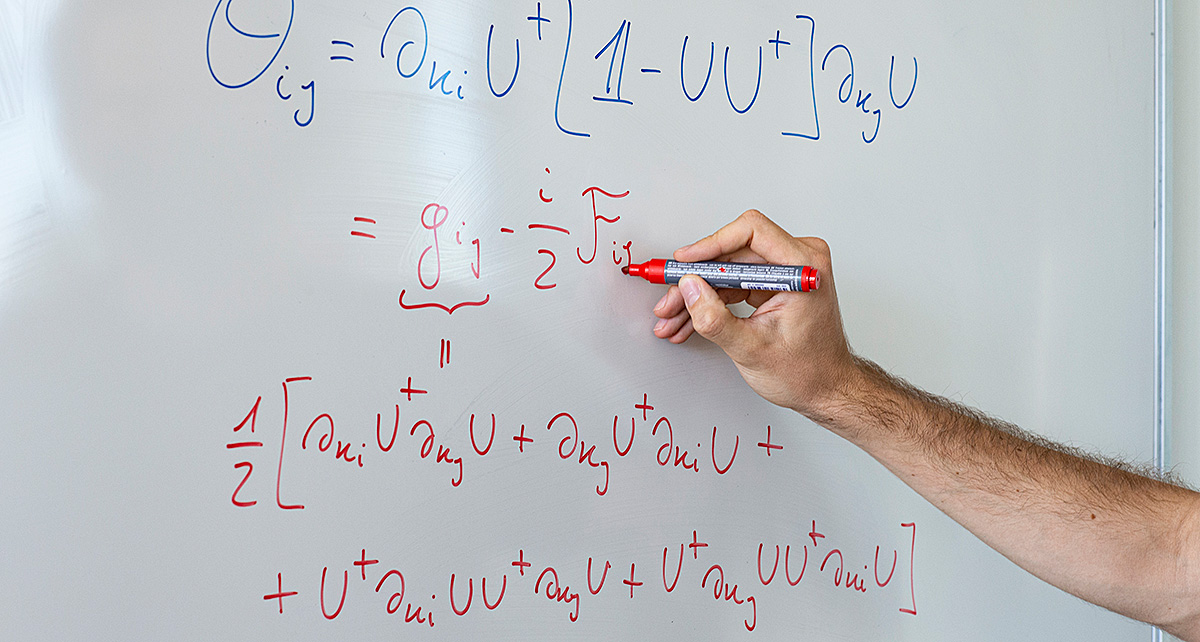 Q_{ij} = ∂_{k_i} U^+ [ 𝟙 - U U^+ ] ∂_{k_j} U
= g_{ij} - i/2 F_{ij}
=
1/2 [ ∂_{k_i} U^+ ∂_{k_j} U + ∂_{k_j} U^+ ∂_{k_i} U +
+ U^+ ∂_{k_i} U U^+ ∂_{k_j} U + U^+ ∂_{k_j} U U^+ ∂_{k_i} U ]